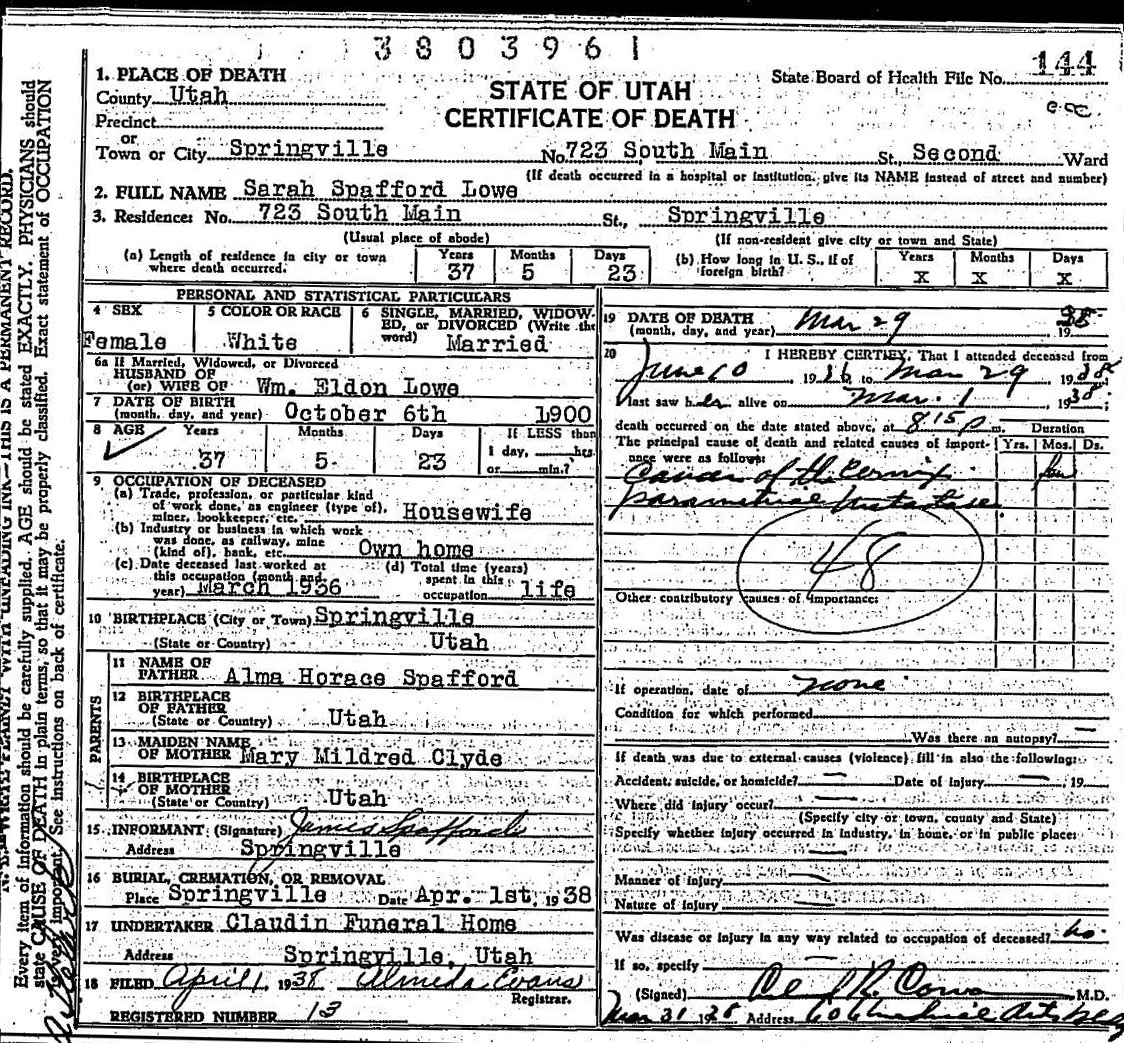 3803961
1. PLACE OF DEATH
State Board of Health File No. 144
County Utah
STATE OF UTAH
CERTIFICATE OF DEATH
Precinct
or
Town or City Springville No. 723 South Main St., Second Ward
(If death occurred in a hospital or institution, give its NAME instead of street and number)
2. FULL NAME Sarah Spafford Lowe
3. Residence: No. 723 South Main St., Springville
(Usual place of abode) (If non-resident give city or town and State)
(a) Length of residence in city or town where death occurred. Years 37 Months 5 Days 23
(b) How long in U. S., if of foreign birth? Years X Months X Days X
PERSONAL AND STATISTICAL PARTICULARS
4 SEX Female
5 COLOR OR RACE White
6 SINGLE, MARRIED, WIDOWED, or DIVORCED (Write the word) Married
6a If Married, Widowed, or Divorced
HUSBAND OF
(or) WIFE OF Wm. Eldon Lowe
7 DATE OF BIRTH
(month, day, and year) October 6th 1900
8 AGE Years 37 Months 5 Days 23 If LESS than 1 day, hrs. or min.?
9 OCCUPATION OF DECEASED
(a) Trade, profession, or particular kind
of work done, as engineer (type of),
miner, bookkeeper, etc. Housewife
(b) Industry or business in which work
was done, as railway, mine
(kind of), bank, etc. Own home
(c) Date deceased last worked at
this occupation (month and
year) March 1936
(d) Total time (years)
spent in this
occupation life
10 BIRTHPLACE (City or Town) Springville
(State or Country) Utah
PARENTS
11 NAME OF
FATHER Alma Horace Spafford
12 BIRTHPLACE
OF FATHER
(State or Country) Utah
13 MAIDEN NAME
OF MOTHER Mary Mildred Clyde
14 BIRTHPLACE
OF MOTHER
(State or Country) Utah
15 INFORMANT: (Signature) James Spafford
Address Springville
16 BURIAL, CREMATION, OR REMOVAL
Place Springville Date Apr. 1st, 1938
17 UNDERTAKER Claudin Funeral Home
Address Springville, Utah
18 FILED April 1, 1938 Almeda Evans
Registrar.
REGISTERED NUMBER 13
19 DATE OF DEATH
(month, day, and year) Mar 29 1938
20 I HEREBY CERTIFY, That I attended deceased from
June 10 1936 to Mar 29 1938
I last saw her alive on Mar. 1, 1938;
death occurred on the date stated above, at 8 15 p m. Duration
The principal cause of death and related causes of importance were as follows: Yrs. Mos. Ds.
Cancer of the Cervix
parametrial metastases
48
Other contributory causes of importance:
If operation, date of none
Condition for which performed
Was there an autopsy? —
If death was due to external causes (violence) fill in also the following:
Accident, suicide, or homicide? — Date of Injury — , 19
Where did injury occur? —
(Specify city or town, county and State)
Specify whether injury occurred in industry, in home, or in public place:
Manner of injury
Nature of injury
Was disease or injury in any way related to occupation of deceased? no.
If so, specify —
(Signed) M.D.
Mar 31 1938 Address
N. B. WRITE PLAINLY WITH UNFADING INK—THIS IS A PERMANENT RECORD.
Every item of information should be carefully supplied. AGE should be stated EXACTLY. PHYSICIANS should
state CAUSE OF DEATH in plain terms, so that it may be properly classified. Exact statement of OCCUPATION
is very important. See instructions on back of certificate.